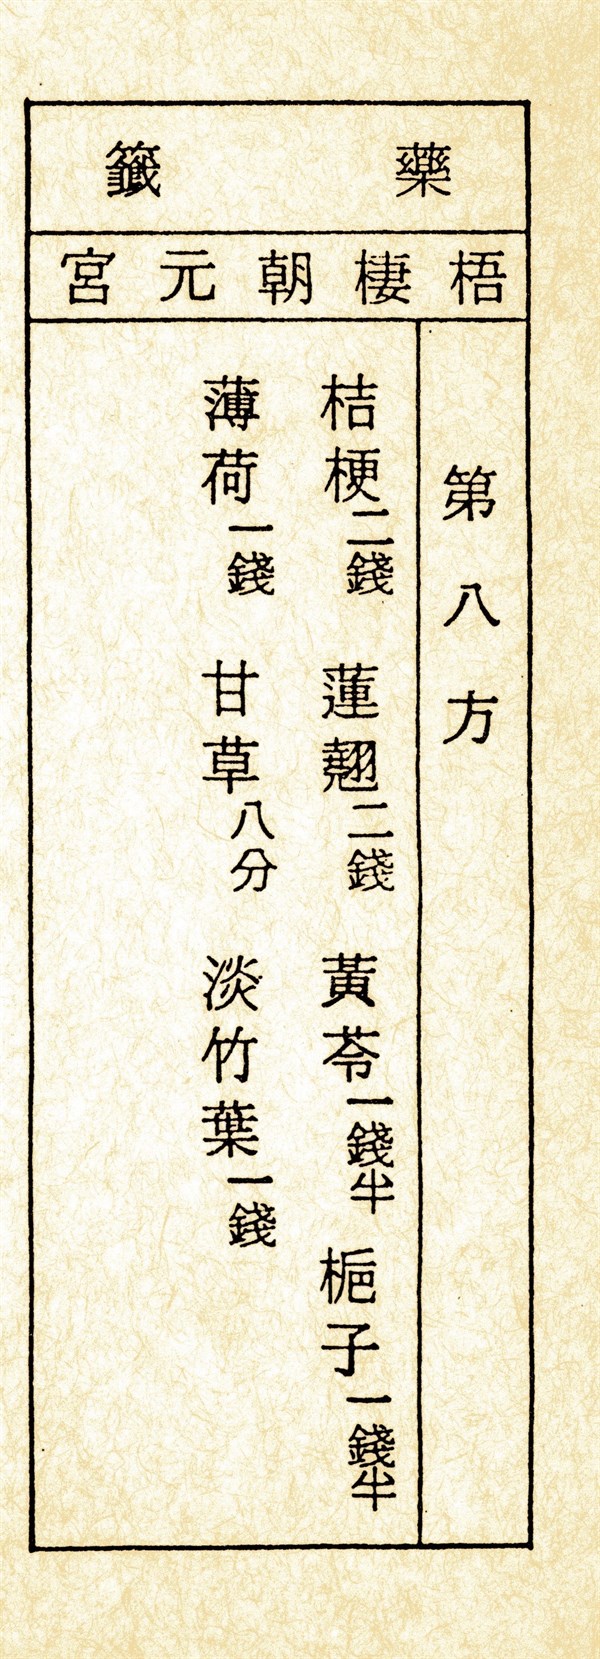 藥籤
梧棲朝元宮
第八方
桔梗二錢 蓮翹二錢 黃芩一錢半 梔子一錢半
薄荷一錢 甘草八分 淡竹葉一錢